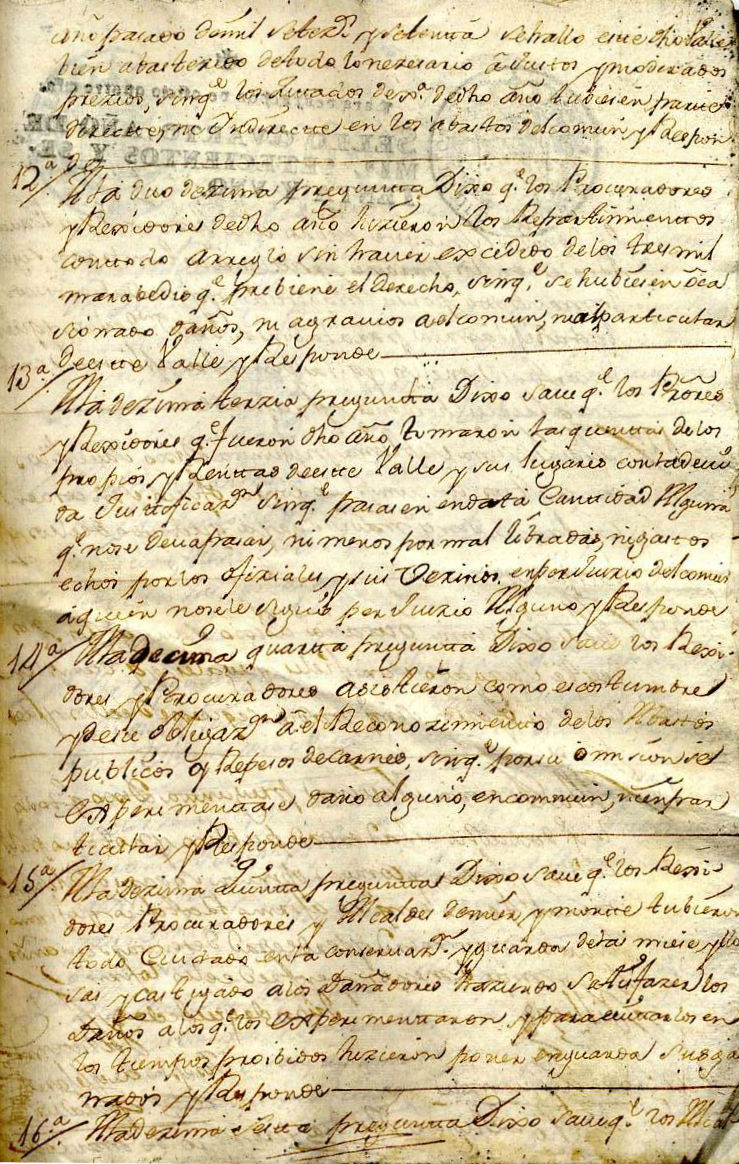 año pasado de mil setez.s y setenta se hallo este dho Valle
bien abastezido de todo lo nezesario a Justos y moderados
prezios, sin q.e los Jurados de dho año tubiesen parte
directe, ni Indirecte en los abastos del comun y Respon
de
12ª A la duo dezima pregunta Dixo q.e los Procuradores
y Rexidores de dho año hizieron los Repartimientos
con todo arreglo sin haver excedido de los tres mil
maravedis q.e prebiene el derecho, sin q.e se hubiesen oca
sionado daños, ni agravios a el comun, ni al particular
de este Valle y Responde
13ª A la dezima terzia pregunta Dixo save q.e los Pro.res
y Rexidores q.e fueron dho año, tomaron las quentas de los
propios y Rentas de este Valle y sus lugares con la devi
da Justificaz.on sin q.e pasasen en data Cantidad Alguna
q.e no se deva pasar, ni menos por mal libradas, ni gastos
echos por los ofiziales y sus Vezinos, en perJuizio del comun
a quien no se le siguio perJuizio Alguno y Responde
14ª A la decima quarta pregunta Dixo save los Rexi-
dores y Procuradores asistieron como es costumbre
y de su obligaz.on a el Reconozimiento de los Abastos
publicos y Repesos de carnes, sin q.e por su omision se
experimentase daño alguno, en commun, ni en par
ticular y Responde
15ª A la dezima Quinta pregunta Dixo save q.e los Rexi-
dores Procuradores y Alcaldes de mier y monte tubieron
todo Cuidado en la conservaz.on y guarda de la miese y
y castigado a los Dañadores haziendo satisfazer los
Daños a los q.e los experimentaron y para evitarlos en
los tiempos proibidos hizieron poner en guarda sus ga
nados y Responde
16ª A la dezima sesta pregunta Dixo save q.e los Alcal